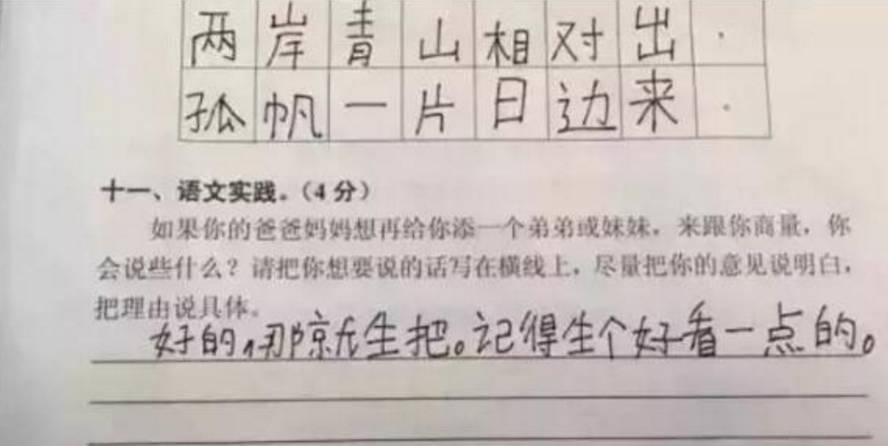 两岸青山相对出.
孤帆一片日边来.
十一、语文实践。（4分）
如果你的爸爸妈妈想再给你添一个弟弟或妹妹，来跟你商量，你
会说些什么？请把你想要说的话写在横线上，尽量把你的意见说明白，
把理由说具体。
好的，那就生把。记得生个好看一点的。